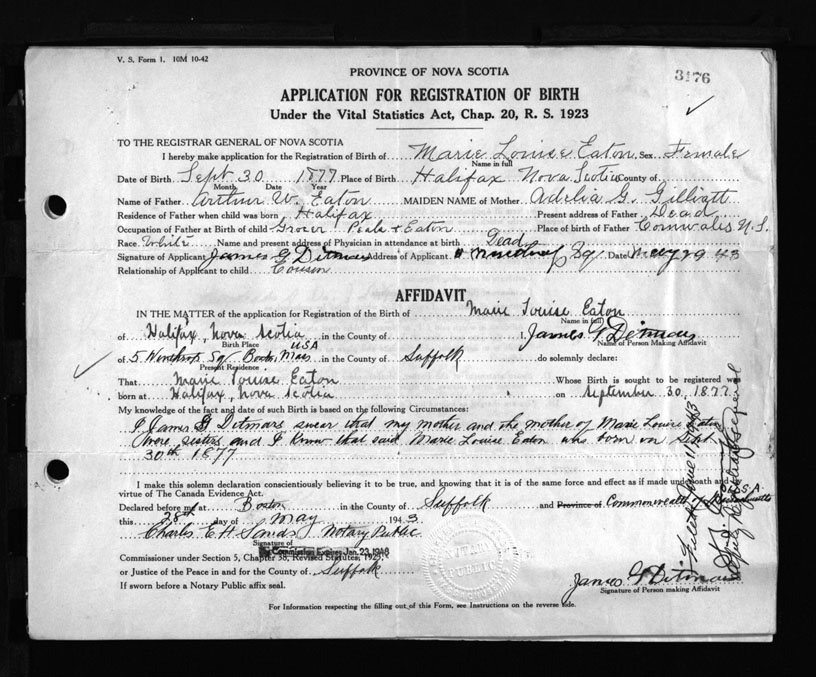 V. S. Form 1. 10M 10-42
3176
PROVINCE OF NOVA SCOTIA
APPLICATION FOR REGISTRATION OF BIRTH
Under the Vital Statistics Act, Chap. 20, R. S. 1923
TO THE REGISTRAR GENERAL OF NOVA SCOTIA
I hereby make application for the Registration of Birth of Marie Louise Eaton Sex Female
Name in full
Date of Birth Sept 30 1877 Place of Birth Halifax Nova Scotia County of
Month Date Year
Name of Father Arthur W. Eaton MAIDEN NAME of Mother Adelia G. Gilliatt
Residence of Father when child was born Halifax Present address of Father Dead
Occupation of Father at Birth of child Grocer Peale & Eaton Place of birth of Father Cornwales N.S.
Race White Name and present address of Physician in attendance at birth Dead
Signature of Applicant James G Ditmars Address of Applicant Date May 29 43
Relationship of Applicant to child Cousin
AFFIDAVIT
IN THE MATTER of the application for Registration of the Birth of Marie Louise Eaton
(Name in full)
of Halifax, Nova Scotia in the County of , James G Ditmars
Birth Place Name of Person Making Affidavit
USA
of 5 Winthrop Sq Boston Mass in the County of Suffolk do solemnly declare:
Present Residence
That Marie Louise Eaton Whose Birth is sought to be registered was
born at Halifax, Nova Scotia on September 30, 1877.
My knowledge of the fact and date of such Birth is based on the following Circumstances:
I James G Ditmars swear that my mother and the mother of Marie Louise Eaton
were sisters and I know that said Marie Louise Eaton was born on Sept
30th 1877
I make this solemn declaration conscientiously believing it to be true, and knowing that it is of the same force and effect as if made under oath and by
virtue of The Canada Evidence Act.
U.S.A
Declared before me at Boston in the County of Suffolk and Province of Commonwealth of Massachusetts
this 28th day of May 1943
Charles E H Sands Notary Public
Signature of
My Commission Expires Jan. 23, 1948
Commissioner under Section 5, Chapter 38, Revised Statutes, 1923,
or Justice of the Peace in and for the County of Suffolk
James G Ditmars
Signature of Person making Affidavit
If sworn before a Notary Public affix seal.
For Information respecting the filling out of this Form, see Instructions on the reverse side.